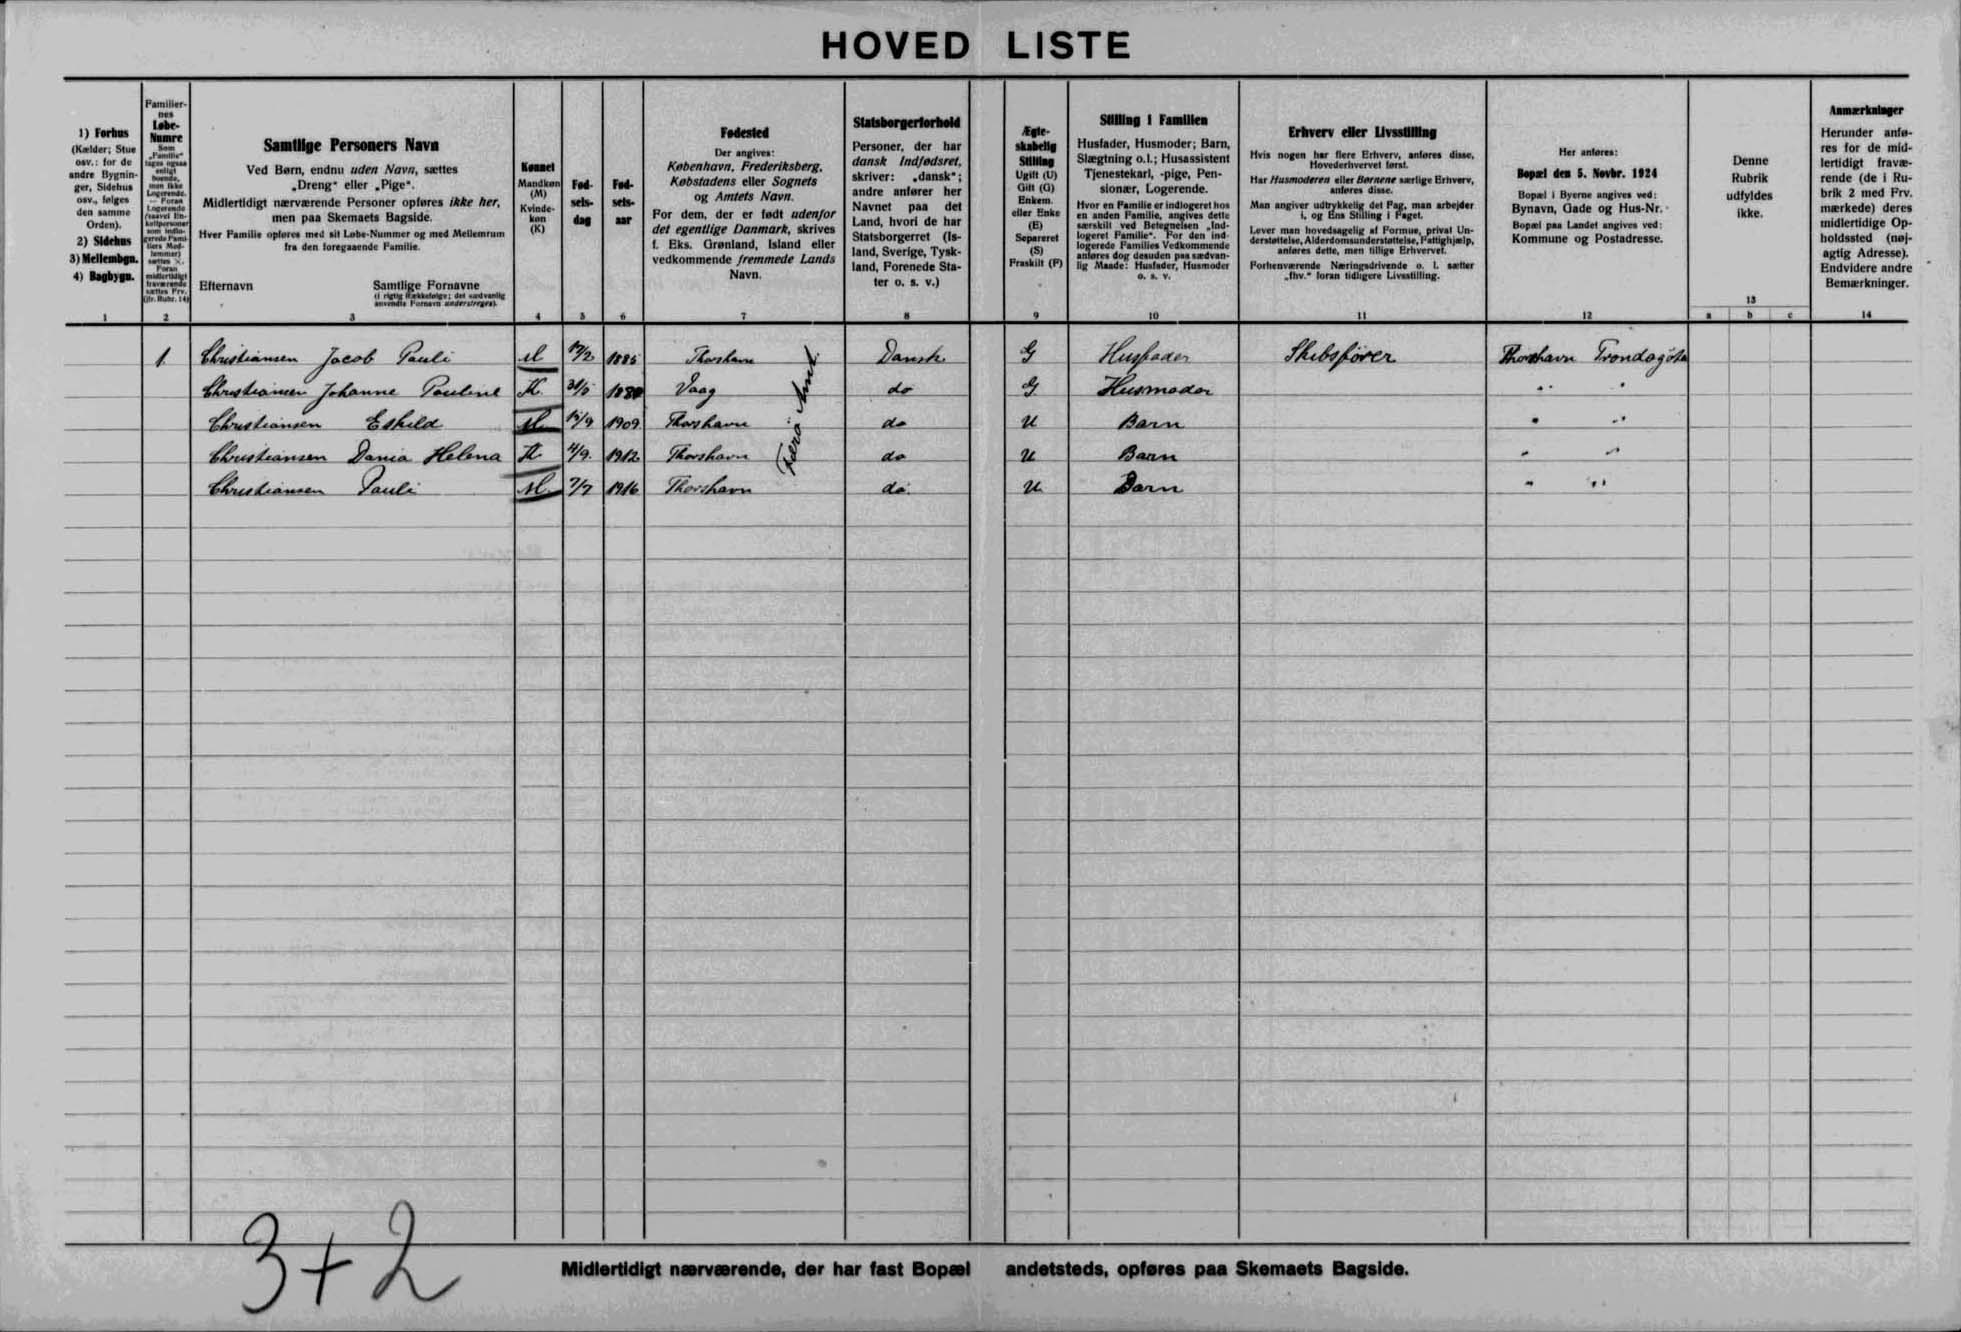 HOVED LISTE
1) Forhus
(Kælder; Stue
osv.: for de
andre Bygnin-
ger, Sidehus
osv., følges
den samme
Orden).
2) Sidehus
3) Mellembgn.
4) Bagbygn.
1
Familier-
nes
Løbe-
Numre
Som
„Familie“
tages ogsaa
enligt
boende,
men ikke
Logerende.
— Foran
Logerende
(saavel En-
keltpersoner
som indlo-
gerede Fami-
liers Med-
lemmer)
sættes ×.
Foran
midlertidigt
fraværende
sættes Frv.
(jfr. Rubr. 14)
2
Samtlige Personers Navn
Ved Børn, endnu uden Navn, sættes
„Dreng“ eller „Pige“.
Midlertidigt nærværende Personer opføres ikke her,
men paa Skemaets Bagside.
Hver Familie opføres med sit Løbe-Nummer og med Mellemrum
fra den foregaaende Familie.
Efternavn Samtlige Fornavne
(i rigtig Rækkefølge; det sædvanlig
anvendte Fornavn understreges).
3
Kønnet
Mandkøn
(M)
Kvinde-
køn
(K)
4
Fød-
sels-
dag
5
Fød-
sels-
aar
6
Fødested
Der angives:
København, Frederiksberg,
Købstadens eller Sognets
og Amtets Navn.
For dem, der er født udenfor
det egentlige Danmark, skrives
f. Eks. Grønland, Island eller
vedkommende fremmede Lands
Navn.
7
Statsborgerforhold
Personer, der har
dansk Indfødsret,
skriver: „dansk“;
andre anfører her
Navnet paa det
Land, hvori de har
Statsborgerret (Is-
land, Sverige, Tysk-
land, Forenede Sta-
ter o. s. v.)
8
Ægte-
skabelig
Stilling
Ugift (U)
Gift (G)
Enkem.
eller Enke
(E)
Separeret
(S)
Fraskilt (F)
9
Stilling i Familien
Husfader, Husmoder; Barn,
Slægtning o.l.; Husassistent
Tjenestekarl, -pige, Pen-
sionær, Logerende.
Hvor en Familie er indlogeret hos
en anden Familie, angives dette
særskilt ved Betegnelsen „Ind-
logeret Familie“. For den ind-
logerede Families Vedkommende
anføres dog desuden paa sædvan-
lig Maade: Husfader, Husmoder
o. s. v.
10
Erhverv eller Livsstilling
Hvis nogen har flere Erhverv, anføres disse,
Hovederhvervet først.
Har Husmoderen eller Børnene særlige Erhverv,
anføres disse.
Man angiver udtrykkelig det Fag, man arbejder
i, og Ens Stilling i Faget.
Lever man hovedsagelig af Formue, privat Un-
derstøttelse, Alderdomsunderstøttelse, Fattighjælp,
anføres dette, men tillige Erhvervet.
Forhenværende Næringsdrivende o. l. sætter
„fhv.“ foran tidligere Livsstilling.
11
Her anføres:
Bopæl den 5. Novbr. 1924
Bopæl i Byerne angives ved:
Bynavn, Gade og Hus-Nr.
Bopæl paa Landet angives ved:
Kommune og Postadresse.
12
Denne
Rubrik
udfyldes
ikke.
13
a b c
Anmærkninger
Herunder anfø-
res for de mid-
lertidigt fravæ-
rende (de i Ru-
brik 2 med Frv.
mærkede) deres
midlertidige Op-
holdssted (nøj-
agtig Adresse).
Endvidere andre
Bemærkninger.
14
1 Christiansen Jacob Pauli M 1885 Thorshavn Dansk G Husfader Skibsfører Thorshavn Trondagöta
Christiansen Johanne Pauline K 31/5 Vaag do G Husmoder " "
Christiansen Eskild M 1909 Thorshavn do U Barn " "
Christiansen Dania Helena K 1912 Thorshavn do U Barn " "
Christiansen Pauli M 7/7 1916 Thorshavn do U Barn " "
Færø Amt
3+2
Midlertidigt nærværende, der har fast Bopæl andetsteds, opføres paa Skemaets Bagside.